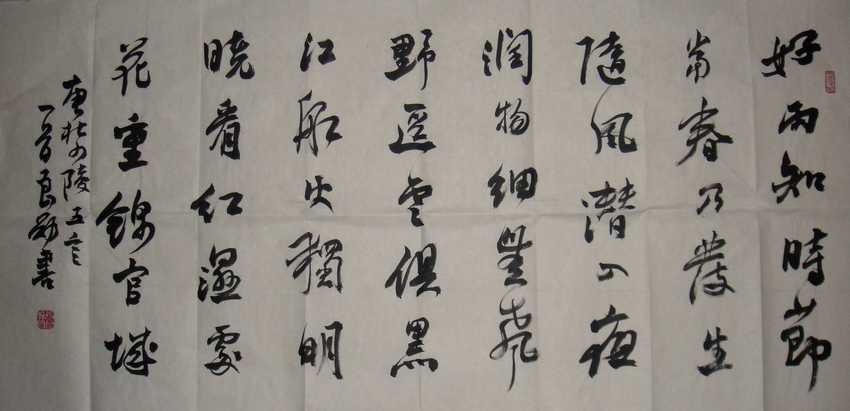 好雨知時節
當春乃發生
隨風潛入夜
潤物細無聲
野逕雲俱黑
江船火獨明
曉看紅濕處
花重錦官城
唐杜少陵五言
一首良書